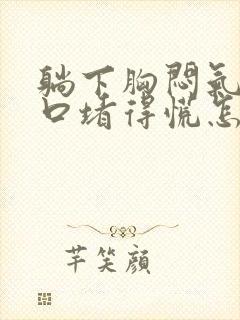 躺下胸闷氣
口堵得慌怎
芊笑顔